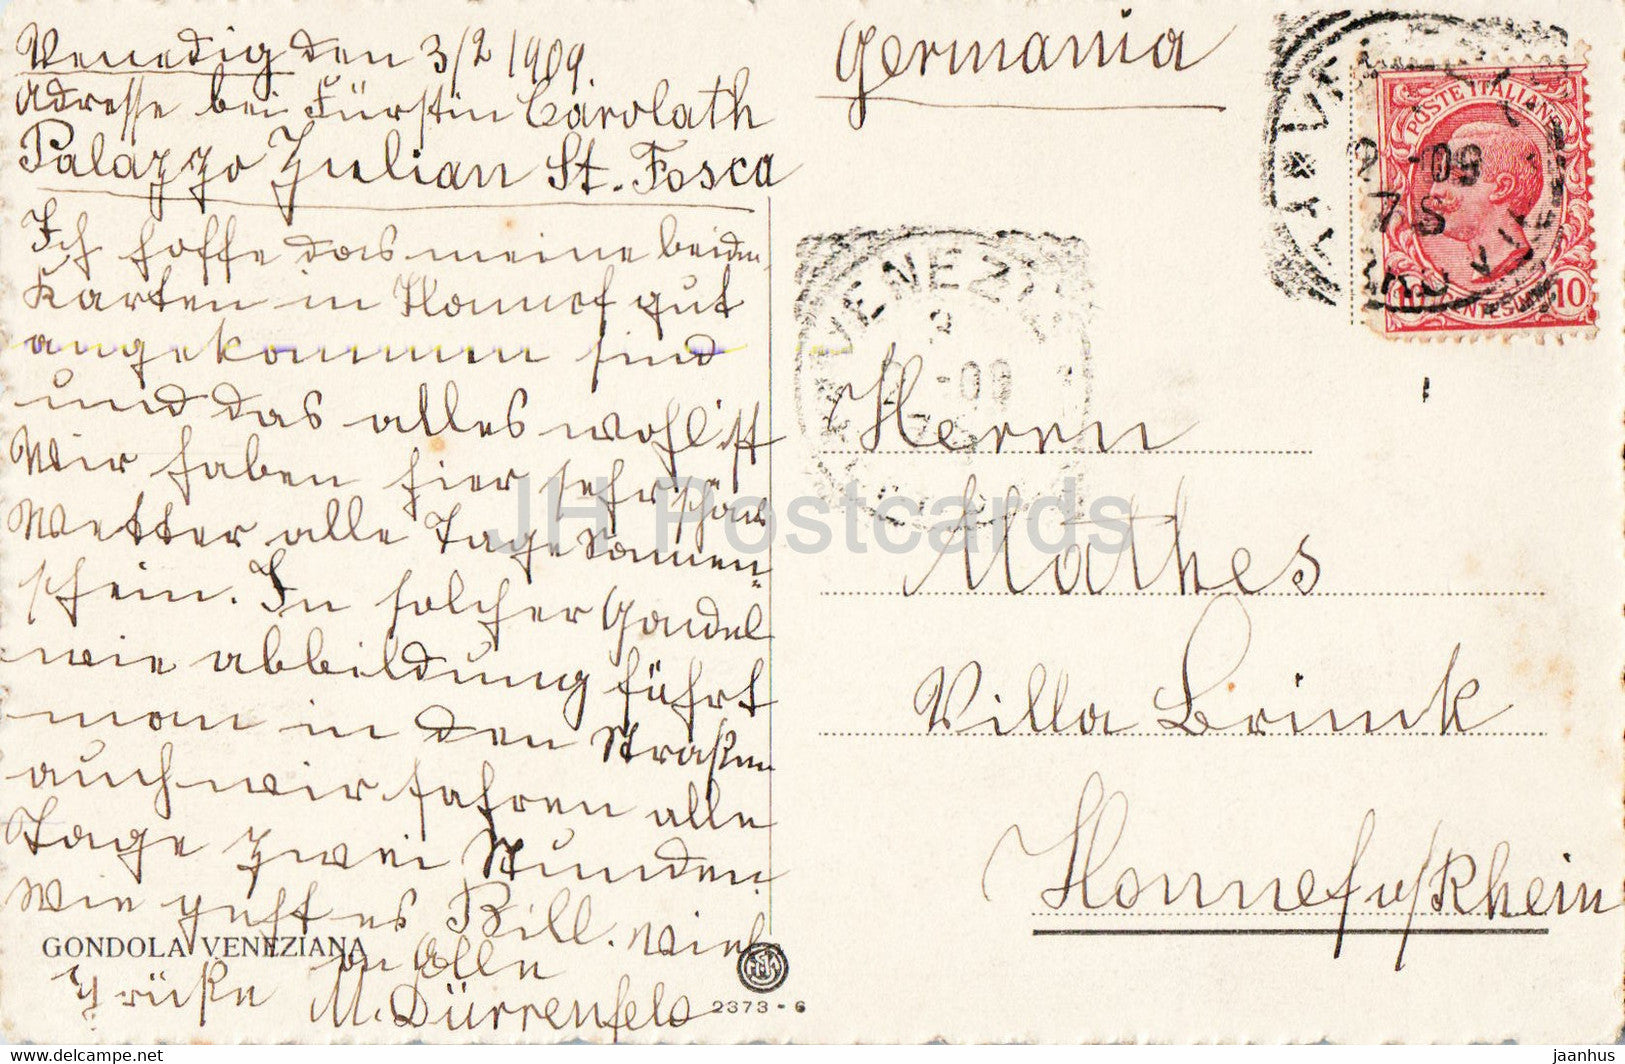 Venedig den 3/2 1909.
Adresse bei Fürstin Carolath
Palazzo Zulian St. Fosca
Ich hoffe das meine beiden
Karten in Honnef gut
angekommen sind
und das alles wohl ist
Wir haben hier sehr schöns
Wetter alle Tage Sonnen=
schein. In solcher Gondel
wie abbildung führt
man in den Straßen
auch wir fahren alle
Tage zwei Stunden.
Wie geht es Bill. viel
GONDOLA VENEZIANA
Grüße an Elle
M. Dürrenfels
2373-6
Germania
VENEZIA
2 -09
7 S
POSTE ITALIANE
10 CENTESIMI 10
VENEZIA
2 -09
Herrn
Mathes
Villa Brink
Honnef a/Rhein
JH Postcards
www.delcampe.net
jaanhus